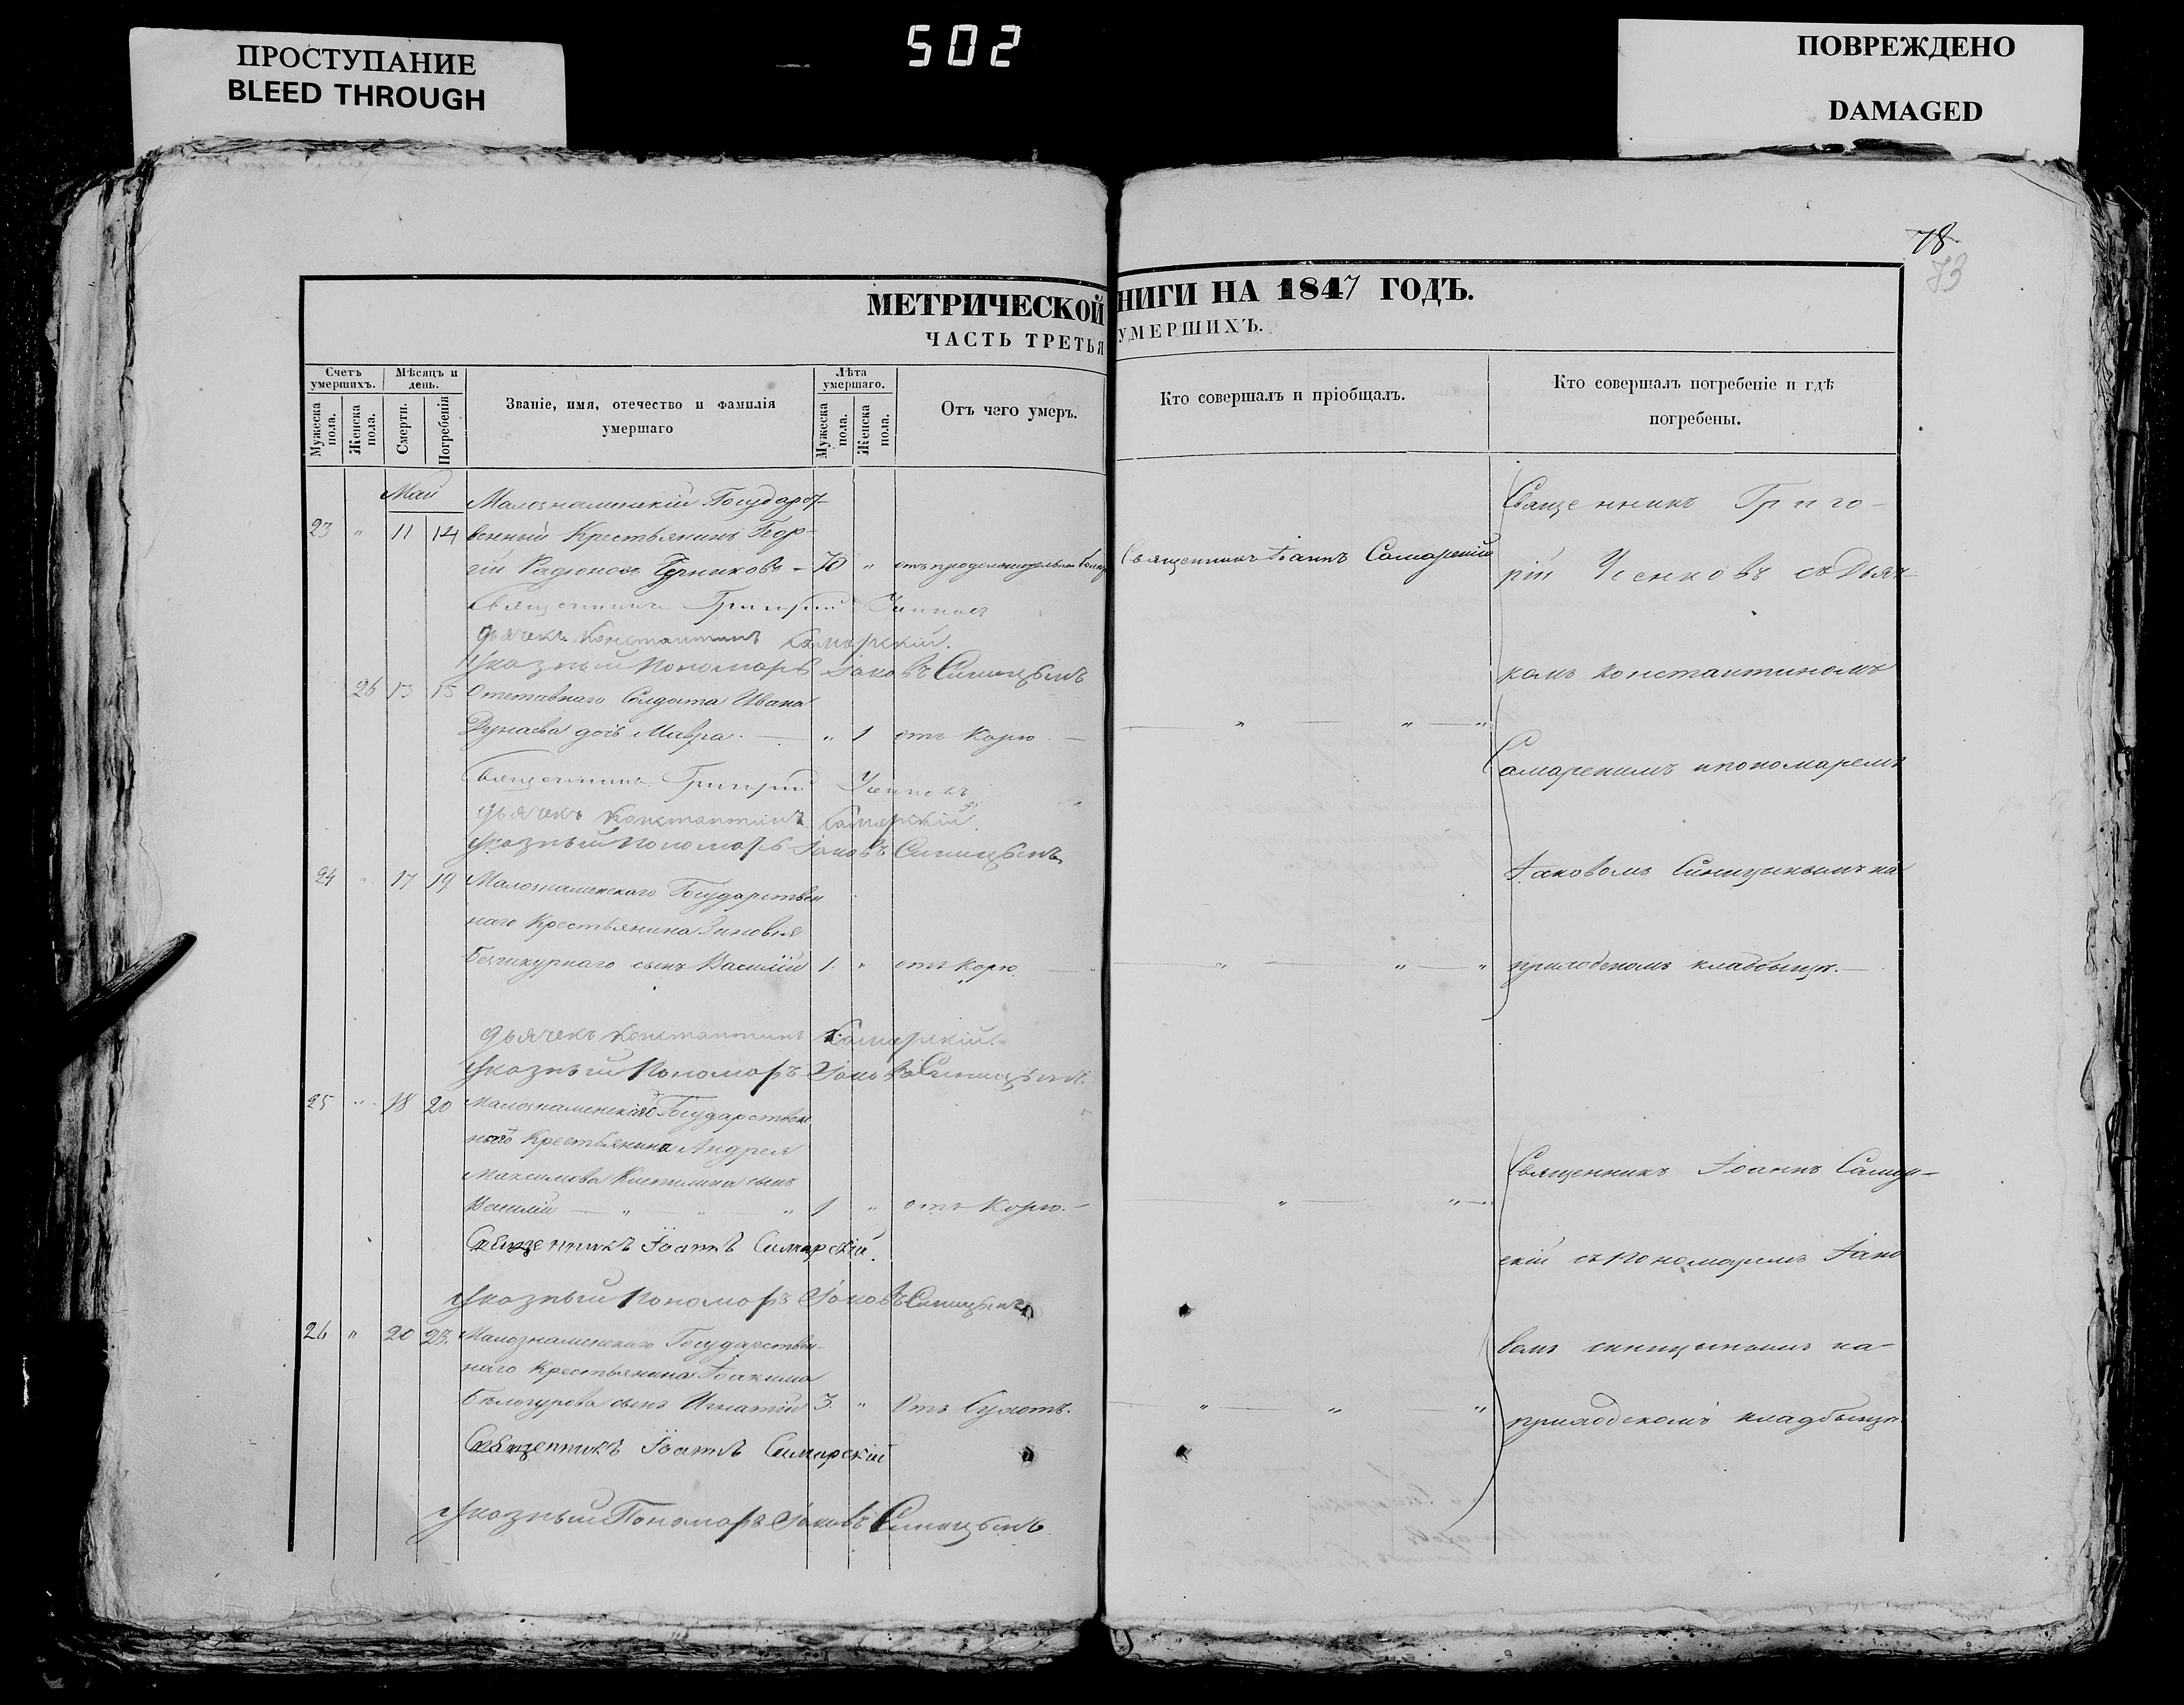 ПРОСТУПАНИЕ
BLEED THROUGH
502
ПОВРЕЖДЕНО
DAMAGED
78
73
МЕТРИЧЕСКОЙ НИГИ НА 1847 ГОДЪ.
ЧАСТЬ ТРЕТЬЯ УМЕРШИХЪ.
Счетъ умершихъ.
Мужеска пола.
Женска пола.
Мѣсяцъ и день.
Смерти.
Погребенія
Званіе, имя, отечество и фамилія
умершаго
Лѣта умершаго.
Мужеска пола.
Женска пола.
Отъ чего умеръ.
Кто совершалъ и пріобщалъ.
Кто совершалъ погребеніе и гдѣ
погребены.
Май
Малознаменскій Государст-
23 " 11 14 венный Крестьянинъ Геор-
гій Радіоновъ - 70 " отъ Священникъ Іоаннъ Самарскій
Священникъ Григорій
дьячекъ Константинъ Самарскій.
Указный Пономарь Іаковъ Синицынъ
26 13 15 Отставнаго Солдата Ивана
Дунаева дочь Мавра. — " 1 отъ Корю. — " — " — "
Священникъ Григорій
дьячекъ Константинъ Самарскій.
Указный Пономарь Іаковъ Синицынъ
24 " 17 19 Малознаменскаго Государствен
наго Крестьянина Зиновія
сынъ Василій 1. " отъ Корю. — " — " — "
дьячекъ Константинъ Самарскій.
Указный Пономарь Іаковъ Синицынъ.
25 " 18 20 Малознаменскаго Государствен
наго Крестьянина Андрея
Максимова сынъ
Василій — " — " — " 1 " отъ Корю. — " — " —
Священникъ Іоаннъ Самарскій.
Указный Пономарь Іаковъ Синицынъ
26 " 20 23. Малознаменскаго Государствен-
наго Крестьянина Іоакима
Бѣлогурова сынъ Игнатій 3. " Отъ Сухотъ. — " — " — "
Священникъ Іоаннъ Самарскій
Указный Пономарь Іаковъ Синицынъ
Священникъ Григо-
рій съ Дьяч-
комъ Константиномъ
Самарскимъ и пономаремъ
Іаковомъ Синицынымъ на
приходскомъ кладбыщѣ. —
Священникъ Іоаннъ Самар-
скій съ Пономаремъ Іако
вомъ синицынымъ на-
приходскомъ кладбыщѣ.